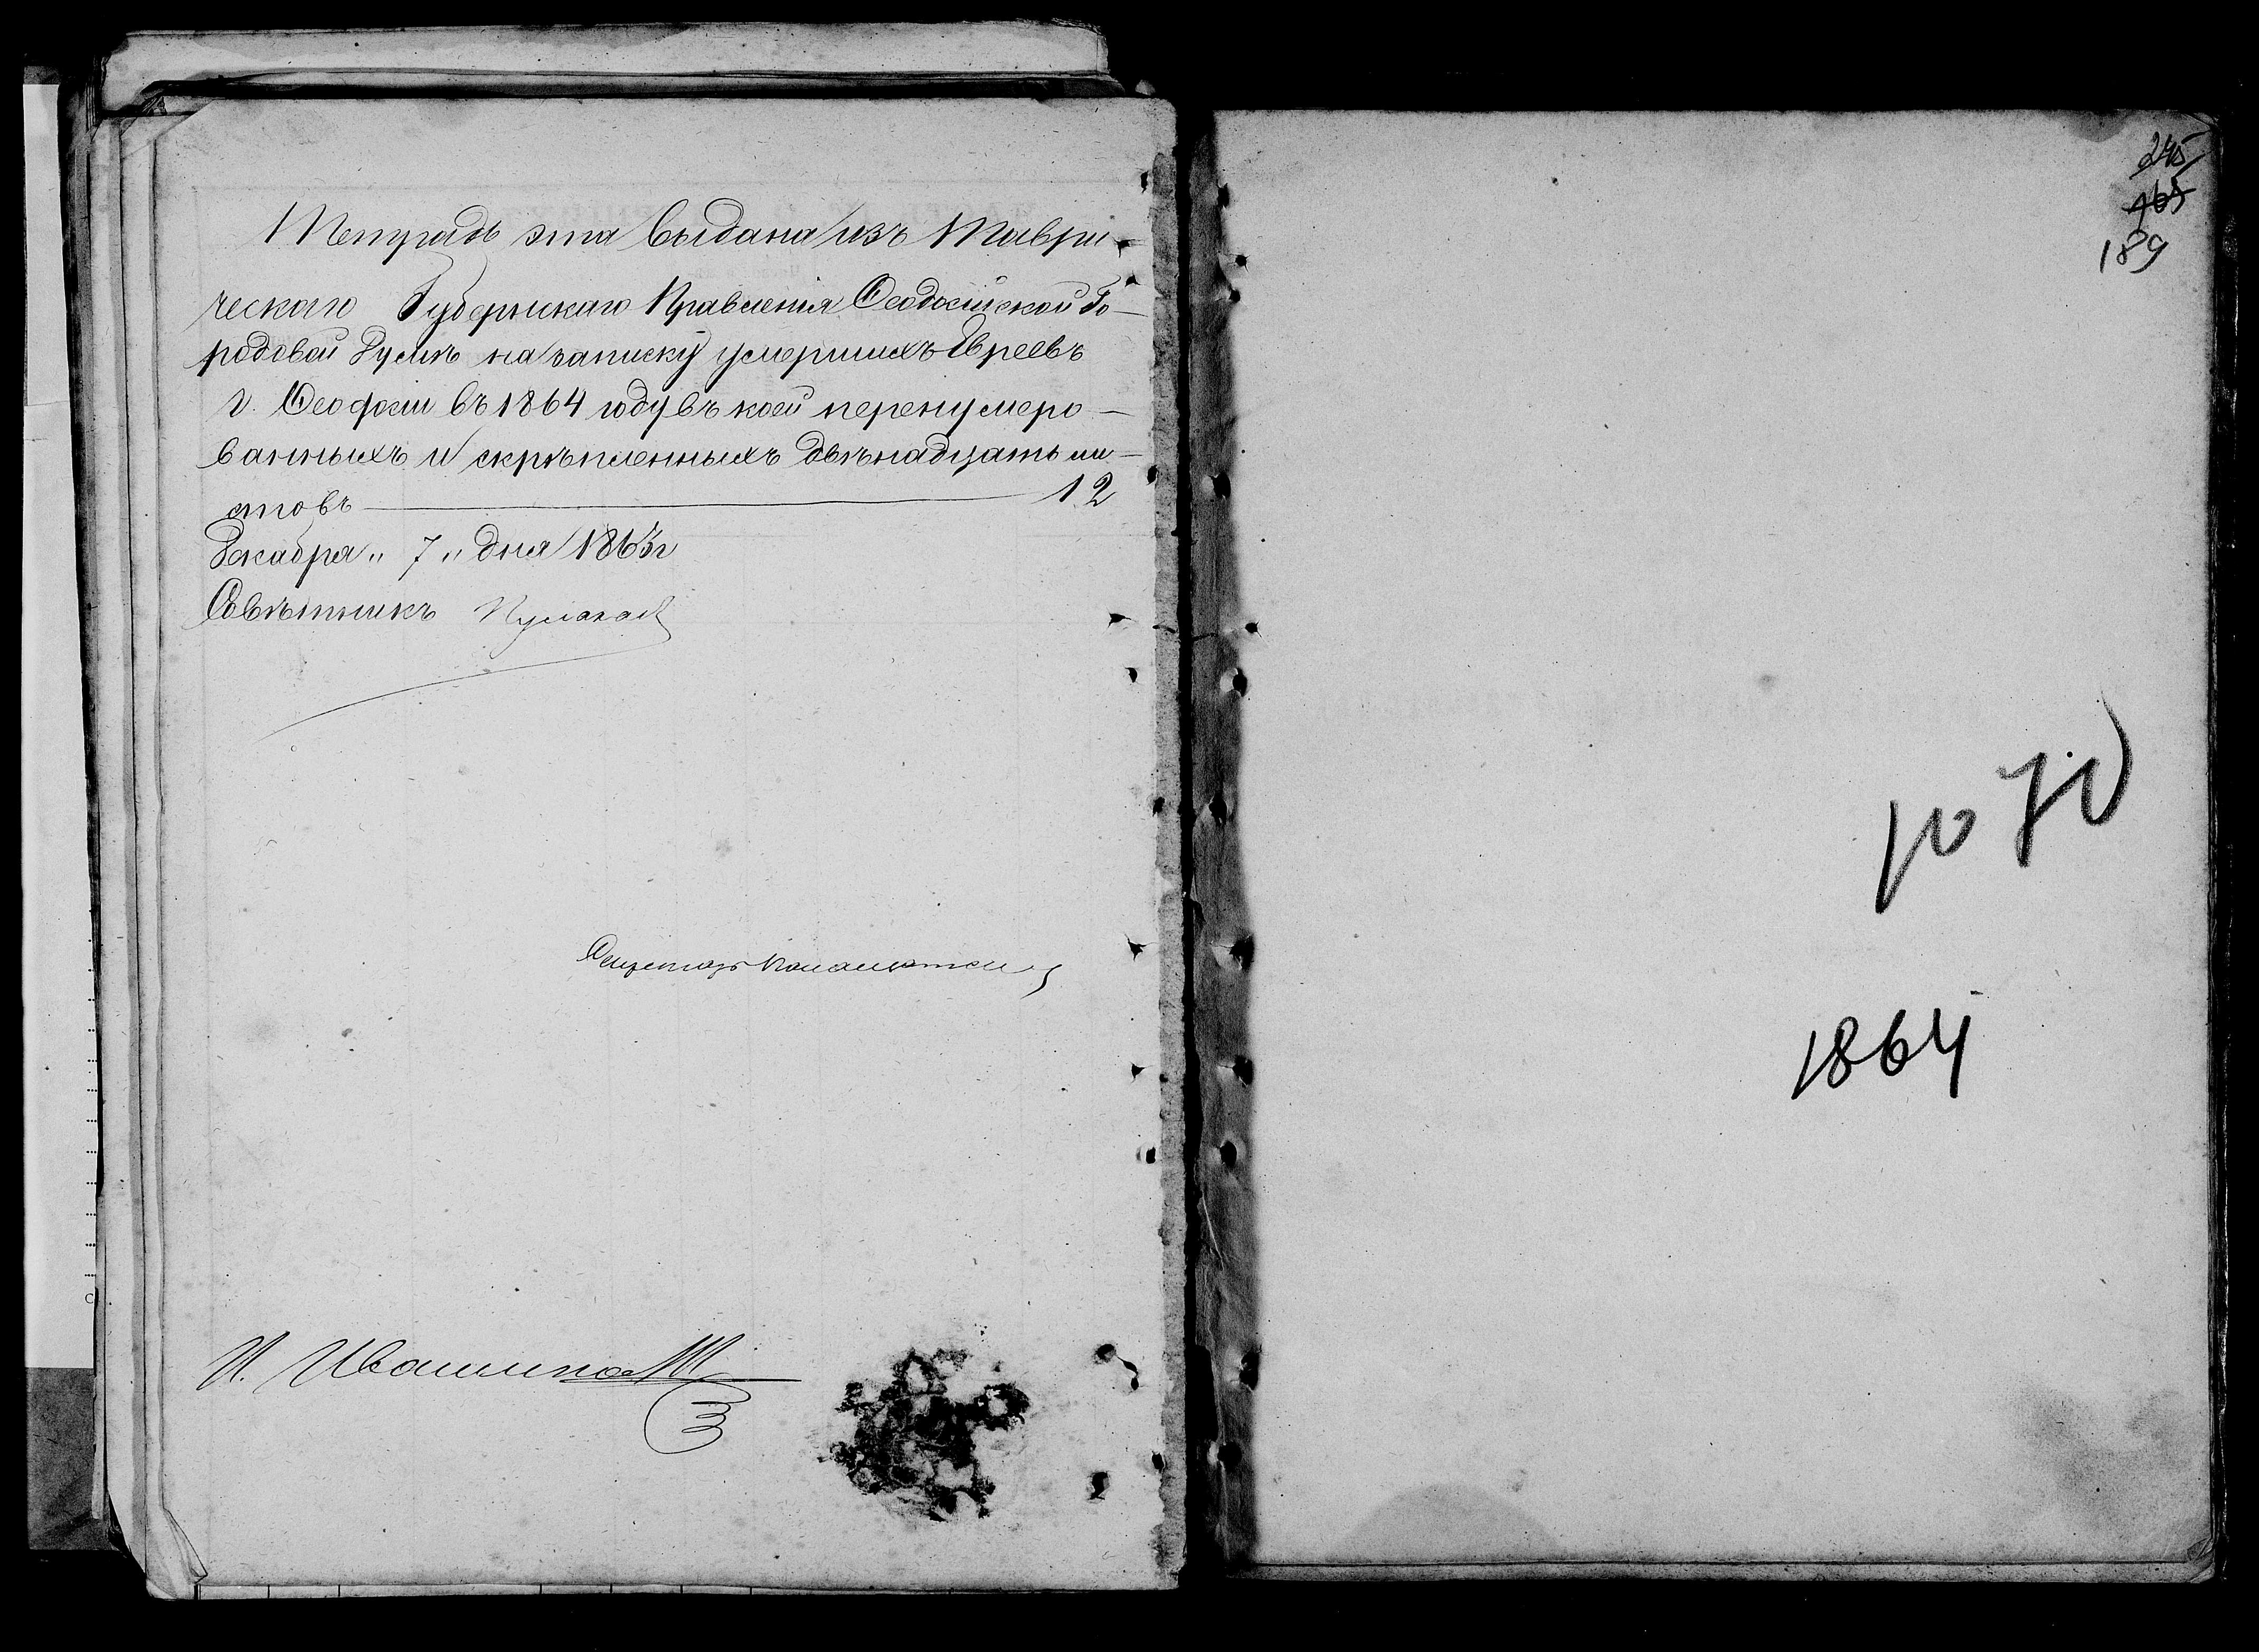 Тетрадь эта выдана изъ Таври-
ческаго Губернскаго Правленія Ѳеодосійской Го-
родовой Думѣ на записку умершихъ Евреевъ
г. Ѳеодосіи въ 1864 году въ коей перенумеро-
ванныхъ и скрѣпленныхъ двѣнадцать ли-
стовъ 12
Декабря „ 7 „ дня 1863 г
Совѣтникъ
Секретарь
И.
245
165
189
рожд
1864